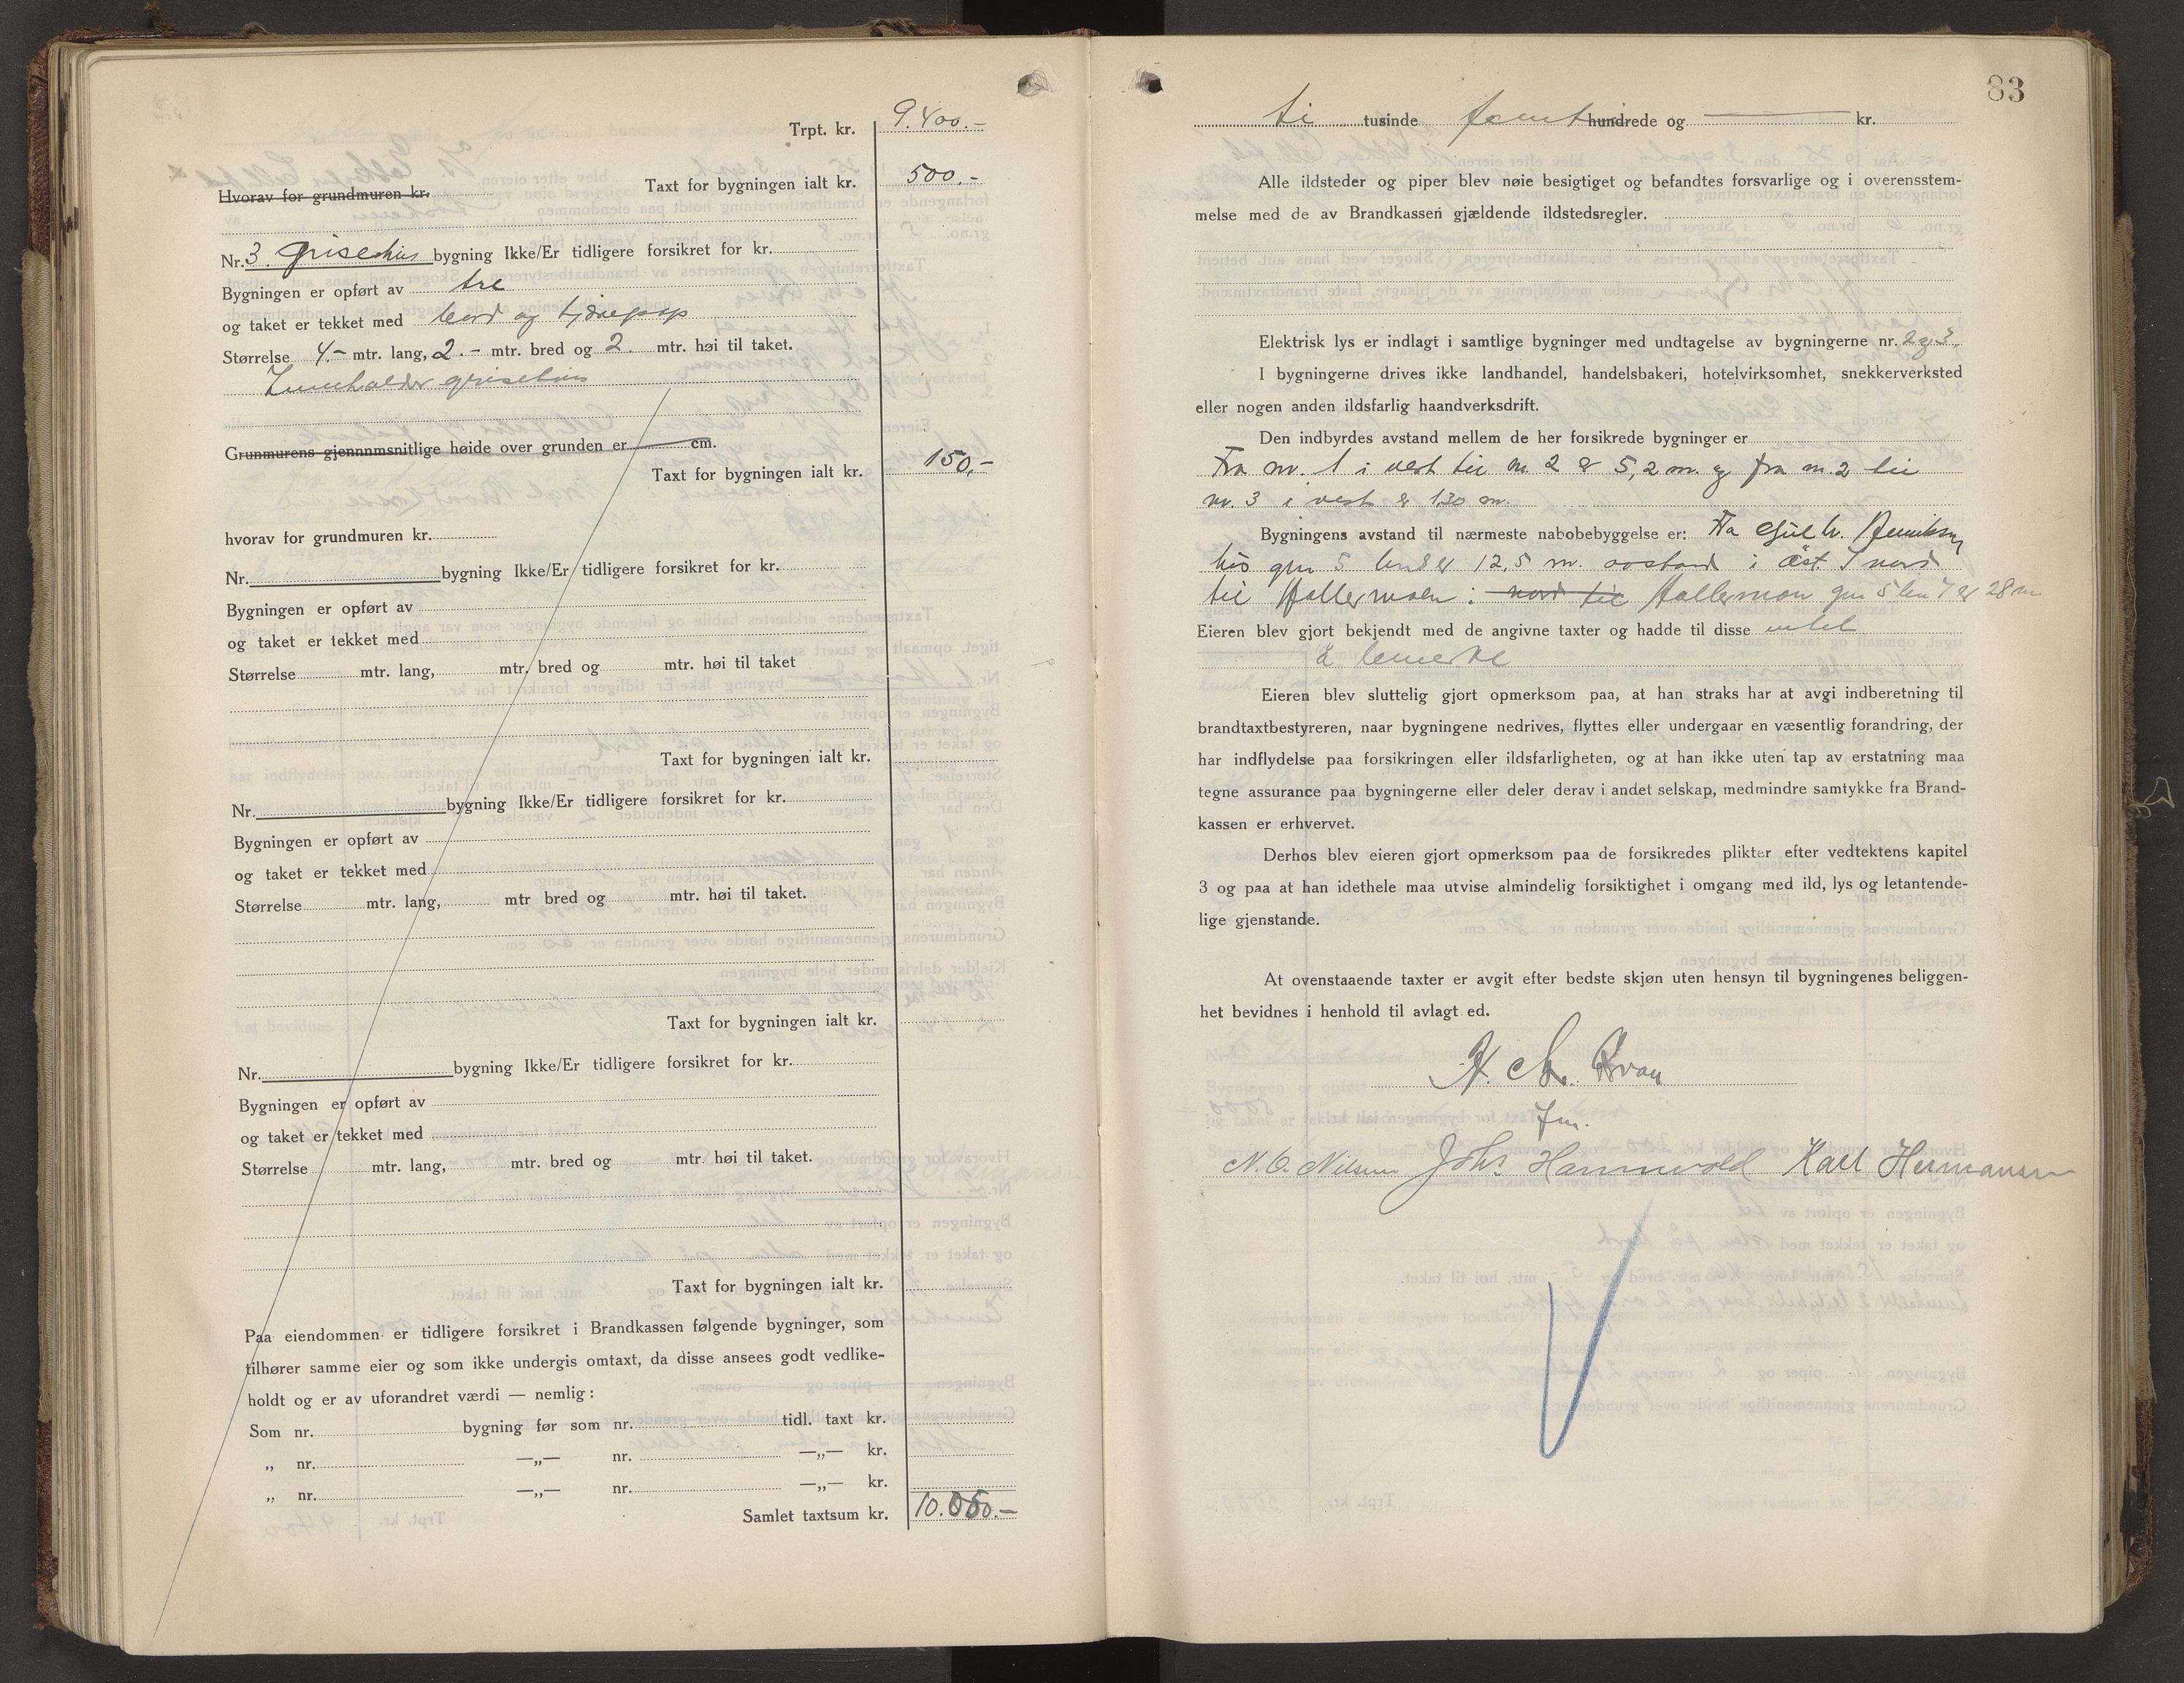 Trpt. kr. 9.400.-
Hvorav for grundmuren kr. Taxt for bygningen ialt kr. 500.-
Nr. 3. Grisehus bygning Ikke/Er tidligere forsikret for kr.
Bygningen er opført av tre
og taket er tekket med bord og tjærepap
Størrelse 4.- mtr. lang, 2.- mtr. bred og 2. mtr. høi til taket.
Innholder grisehus
Grunmurens gjennnmsnitlige høide over grunden er cm.
Taxt for bygningen ialt kr. 150,-
hvorav for grundmuren kr.
Nr. bygning Ikke/Er tidligere forsikret for kr.
Bygningen er opført av
og taket er tekket med
Størrelse mtr. lang, mtr. bred og mtr. høi til taket
Taxt for bygningen ialt kr.
Nr. bygning Ikke/Er tidligere forsikret for kr.
Bygningen er opført av
og taket er tekket med
Størrelse mtr. lang, mtr bred og mtr. høi til taket.
Taxt for bygningen ialt kr.
Nr. bygning Ikke/Er tidligere forsikret for kr.
Bygningen er opført av
og taket er tekket med
Størrelse mtr. lang, mtr. bred og mtr. høi til taket.
Taxt for bygningen ialt kr.
Paa eiendommen er tidligere forsikret i Brandkassen følgende bygninger, som
tilhører samme eier og som ikke undergis omtaxt, da disse ansees godt vedlike-
holdt og er av uforandret værdi — nemlig:
Som nr. bygning før som nr. tidl. taxt kr.
„ nr. —„— nr. —„— kr.
„ nr. —„— nr. —„— kr.
Samlet taxtsum kr. 10.050.-
83
ti tusinde femti hundrede og kr.
Alle ildsteder og piper blev nøie besigtiget og befandtes forsvarlige og i overensstem-
melse med de av Brandkassen gjældende ildstedsregler.
Elektrisk lys er indlagt i samtlige bygninger med undtagelse av bygningerne nr. 2 og 3.
I bygningerne drives ikke landhandel, handelsbakeri, hotelvirksomhet, snekkerverksted
eller nogen anden ildsfarlig haandverksdrift.
Den indbyrdes avstand mellem de her forsikrede bygninger er
Fra nr. 1 i vest til nr. 2 er 5,2 m. og fra nr. 2 til
nr. 3 i vest er 1.30 m.
Bygningens avstand til nærmeste nabobebyggelse er: Fra
hus gnr 5 er 12,5 m. avstand i øst I nord
til Hallermoen i nord til Hallermoen gnr 5 bnr 7 er 28 m.
Eieren blev gjort bekjendt med de angivne taxter og hadde til disse intet
å bemerke
Eieren blev sluttelig gjort opmerksom paa, at han straks har at avgi indberetning til
brandtaxtbestyreren, naar bygningene nedrives, flyttes eller undergaar en væsentlig forandring, der
har indflydelse paa forsikringen eller ildsfarligheten, og at han ikke uten tap av erstatning maa
tegne assurance paa bygningerne eller deler derav i andet selskap, medmindre samtykke fra Brand-
kassen er erhvervet.
Derhos blev eieren gjort opmerksom paa de forsikredes plikter efter vedtektens kapitel
3 og paa at han idethele maa utvise almindelig forsiktighet i omgang med ild, lys og letantende-
lige gjenstande.
At ovenstaaende taxter er avgit efter bedste skjøn uten hensyn til bygningenes beliggen-
het bevidnes i henhold til avlagt ed.
fm.
N. O. Nilsen Johs Hammvold Karl Hermansen